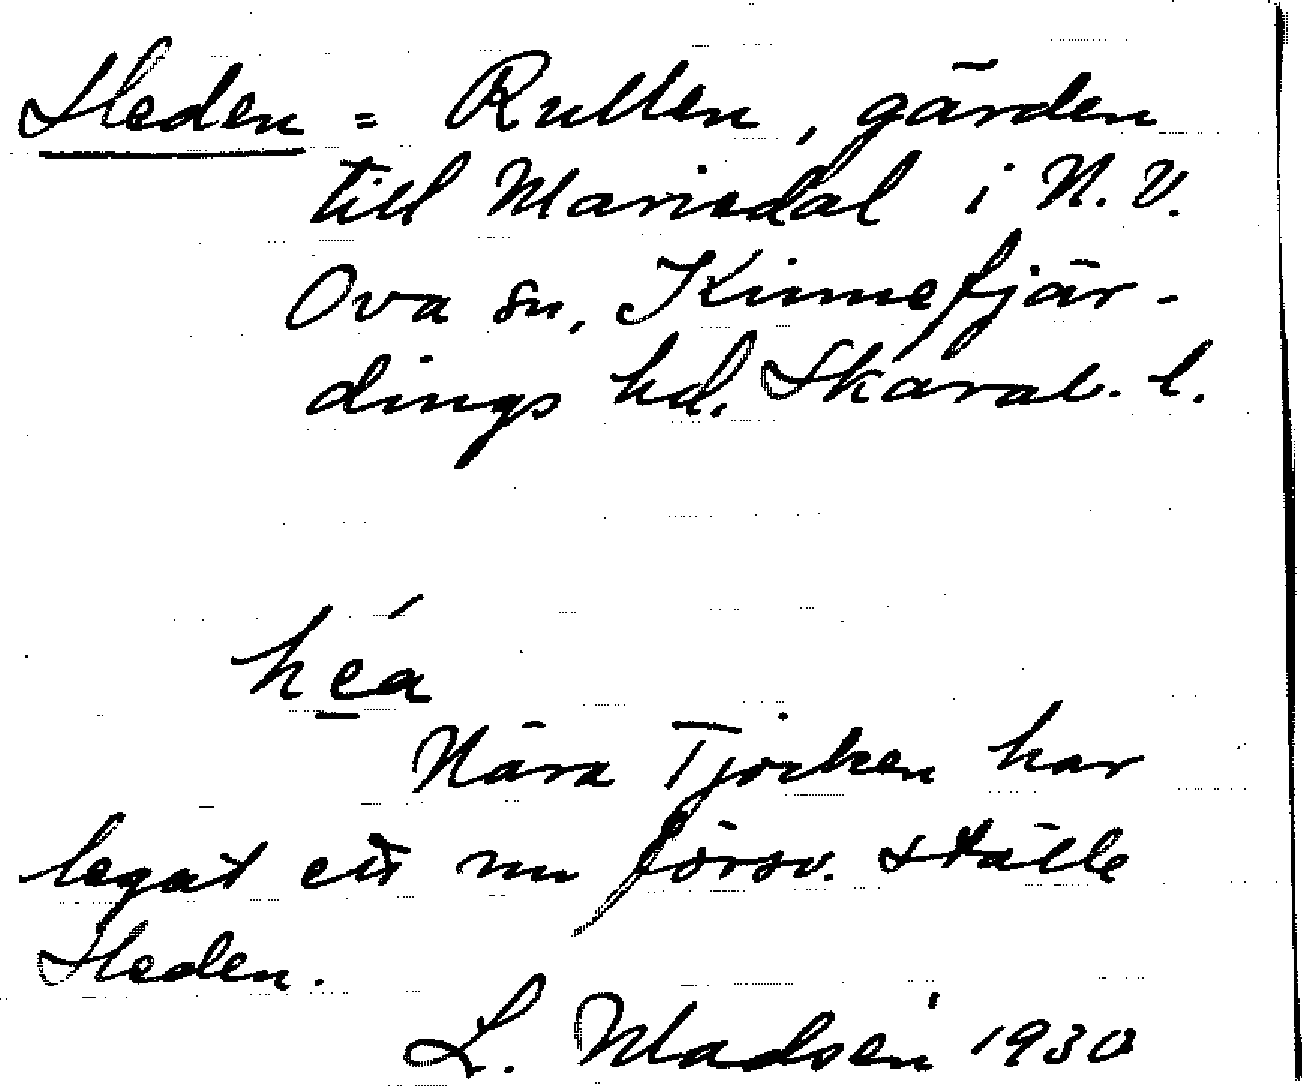 Heden = Rullen, gården
till Mariedal i N.V.
Ova sn, Kinnefjär-
dings hd. Skarab. l.
héa
Nära Tjocken har
legat ett nu försv. ställe
Heden.
L. Madsén 1930